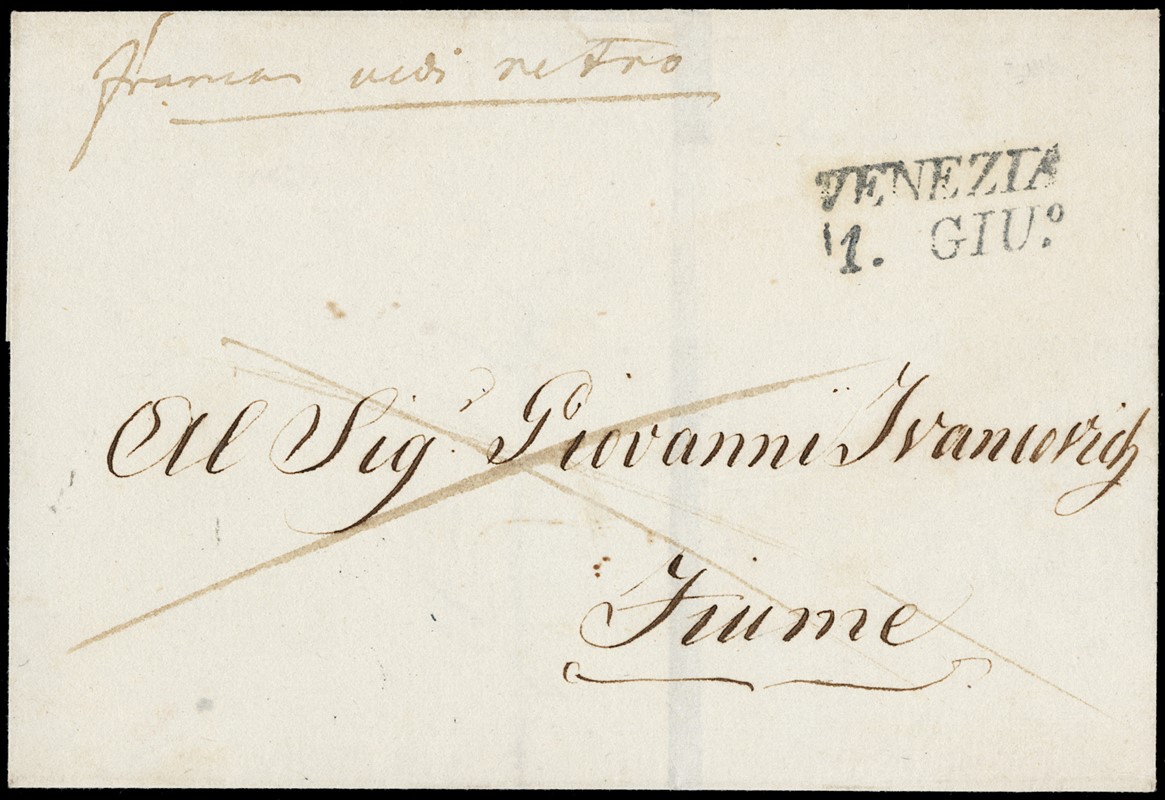 franca vedi retro
VENEZIA
1. GIU.º
Al Sig.r Giovanni Ivancovich
Fiume